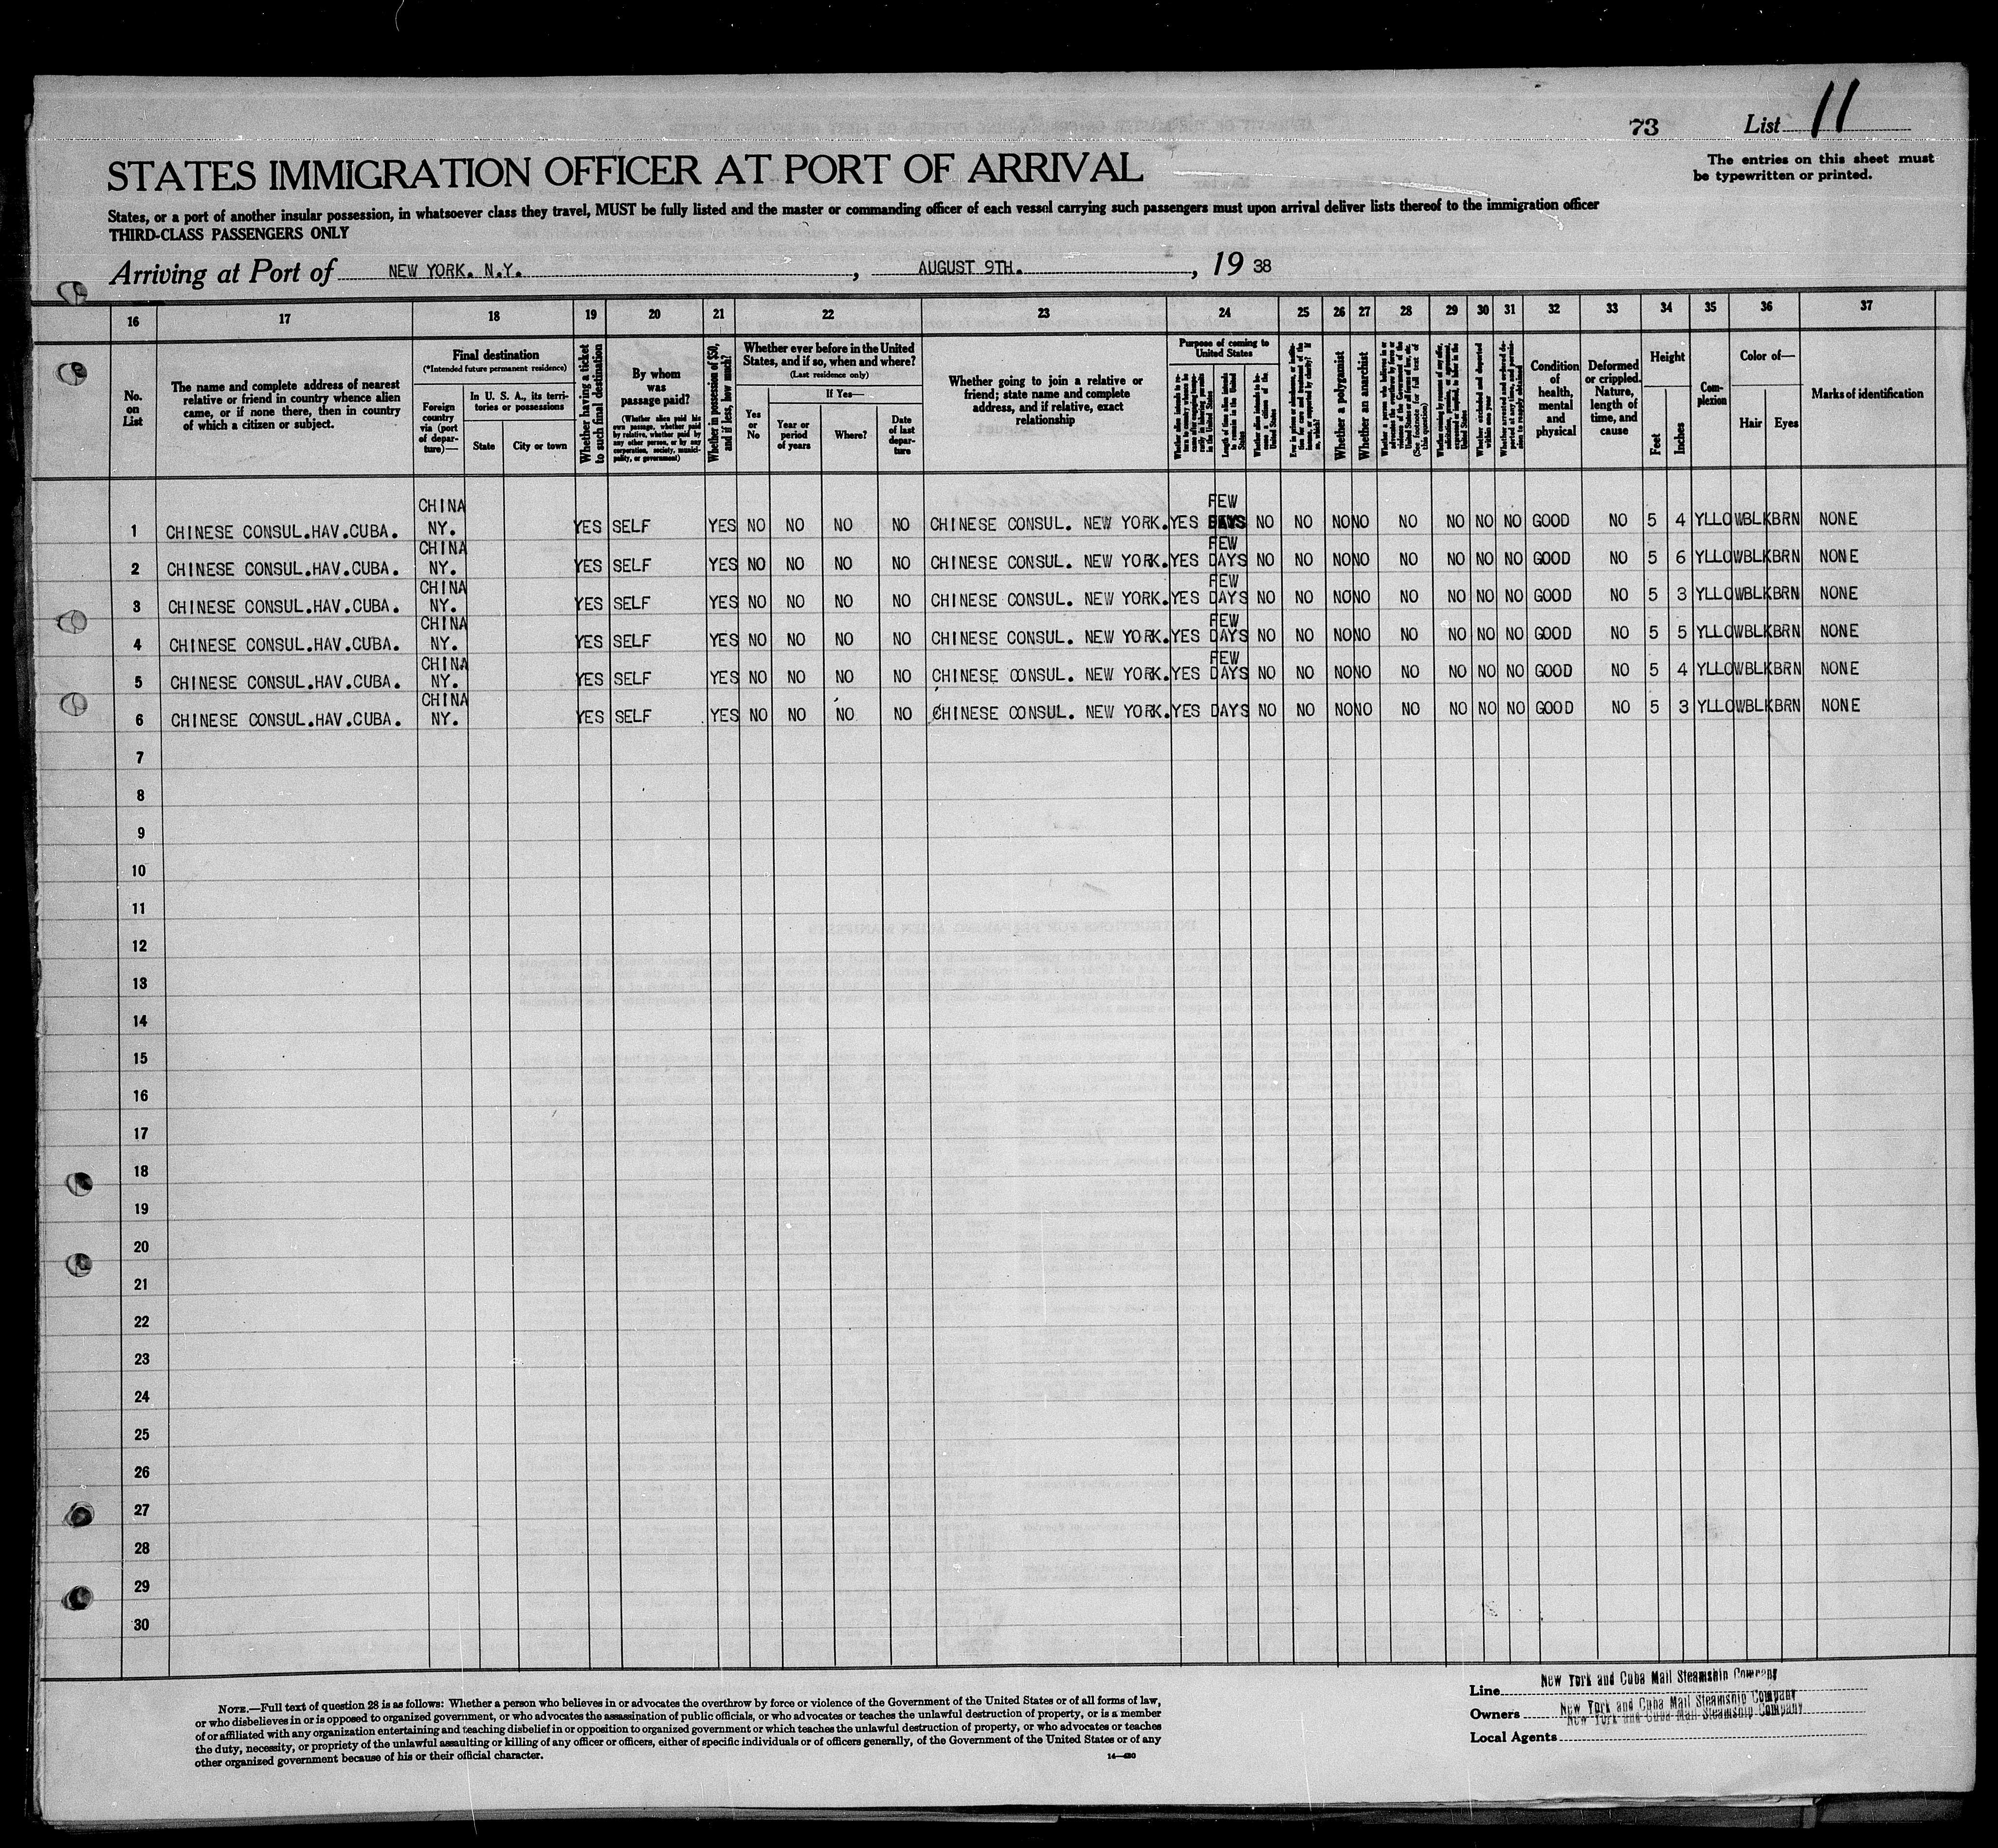 73 List 11
The entries on this sheet must
be typewritten or printed.
STATES IMMIGRATION OFFICER AT PORT OF ARRIVAL
States, or a port of another insular possession, in whatsoever class they travel, MUST be fully listed and the master or commanding officer of each vessel carrying such passengers must upon arrival deliver lists thereof to the immigration officer
THIRD-CLASS PASSENGERS ONLY
Arriving at Port of NEW YORK. N.Y. , AUGUST 9TH. , 19 38
16 17 18 19 20 21 22 23 24 25 26 27 28 29 30 31 32 33 34 35 36 37
No. on List
The name and complete address of nearest
relative or friend in country whence alien
came, or if none there, then in country
of which a citizen or subject.
Final destination
(*Intended future permanent residence)
Foreign country via (port of departure)—
In U. S. A., its territories or possessions
State
City or town
Whether having a ticket to such final destination
By whom was passage paid?
(Whether alien paid his own passage, whether paid by relative, whether paid by any other person, or by any corporation, society, municipality, or government)
Whether in possession of $50, and if less, how much?
Whether ever before in the United
States, and if so, when and where?
(Last residence only)
Yes or No
If Yes—
Year or period of years
Where?
Date of last departure
Whether going to join a relative or
friend; state name and complete
address, and if relative, exact
relationship
Purpose of coming to
United States
Length of time alien intends to remain in the United States
Whether alien intends to become a citizen of the United States
Whether a polygamist
Whether an anarchist
Condition of health, mental and physical
Deformed or crippled. Nature, length of time, and cause
Height
Feet
Inches
Complexion
Color of—
Hair
Eyes
Marks of identification
1 CHINESE CONSUL.HAV.CUBA. CHINA NY. YES SELF YES NO NO NO NO CHINESE CONSUL. NEW YORK. YES FEW DAYS NO NO NO NO NO NO NO NO GOOD NO 5 4 YLLOW BLK BRN NONE
2 CHINESE CONSUL.HAV.CUBA. CHINA NY. YES SELF YES NO NO NO NO CHINESE CONSUL. NEW YORK. YES FEW DAYS NO NO NO NO NO NO NO NO GOOD NO 5 6 YLLOW BLK BRN NONE
3 CHINESE CONSUL.HAV.CUBA. CHINA NY. YES SELF YES NO NO NO NO CHINESE CONSUL. NEW YORK. YES FEW DAYS NO NO NO NO NO NO NO NO GOOD NO 5 3 YLLOW BLK BRN NONE
4 CHINESE CONSUL.HAV.CUBA. CHINA NY. YES SELF YES NO NO NO NO CHINESE CONSUL. NEW YORK. YES FEW DAYS NO NO NO NO NO NO NO NO GOOD NO 5 5 YLLOW BLK BRN NONE
5 CHINESE CONSUL.HAV.CUBA. CHINA NY. YES SELF YES NO NO NO NO CHINESE CONSUL. NEW YORK. YES FEW DAYS NO NO NO NO NO NO NO NO GOOD NO 5 4 YLLOW BLK BRN NONE
6 CHINESE CONSUL.HAV.CUBA. CHINA NY. YES SELF YES NO NO NO NO CHINESE CONSUL. NEW YORK. YES DAYS NO NO NO NO NO NO NO NO GOOD NO 5 3 YLLOW BLK BRN NONE
7
8
9
10
11
12
13
14
15
16
17
18
19
20
21
22
23
24
25
26
27
28
29
30
NOTE.—Full text of question 28 is as follows: Whether a person who believes in or advocates the overthrow by force or violence of the Government of the United States or of all forms of law,
or who disbelieves in or is opposed to organized government, or who advocates the assassination of public officials, or who advocates or teaches the unlawful destruction of property, or is a member
of or affiliated with any organization entertaining and teaching disbelief in or opposition to organized government or which teaches the unlawful destruction of property, or who advocates or teaches
the duty, necessity, or propriety of the unlawful assaulting or killing of any officer or officers, either of specific individuals or of officers generally, of the Government of the United States or of any
other organized government because of his or their official character.
14—430
Line New York and Cuba Mail Steamship Company
Owners New York and Cuba Mail Steamship Company
New York and Cuba Mail Steamship Company
Local Agents